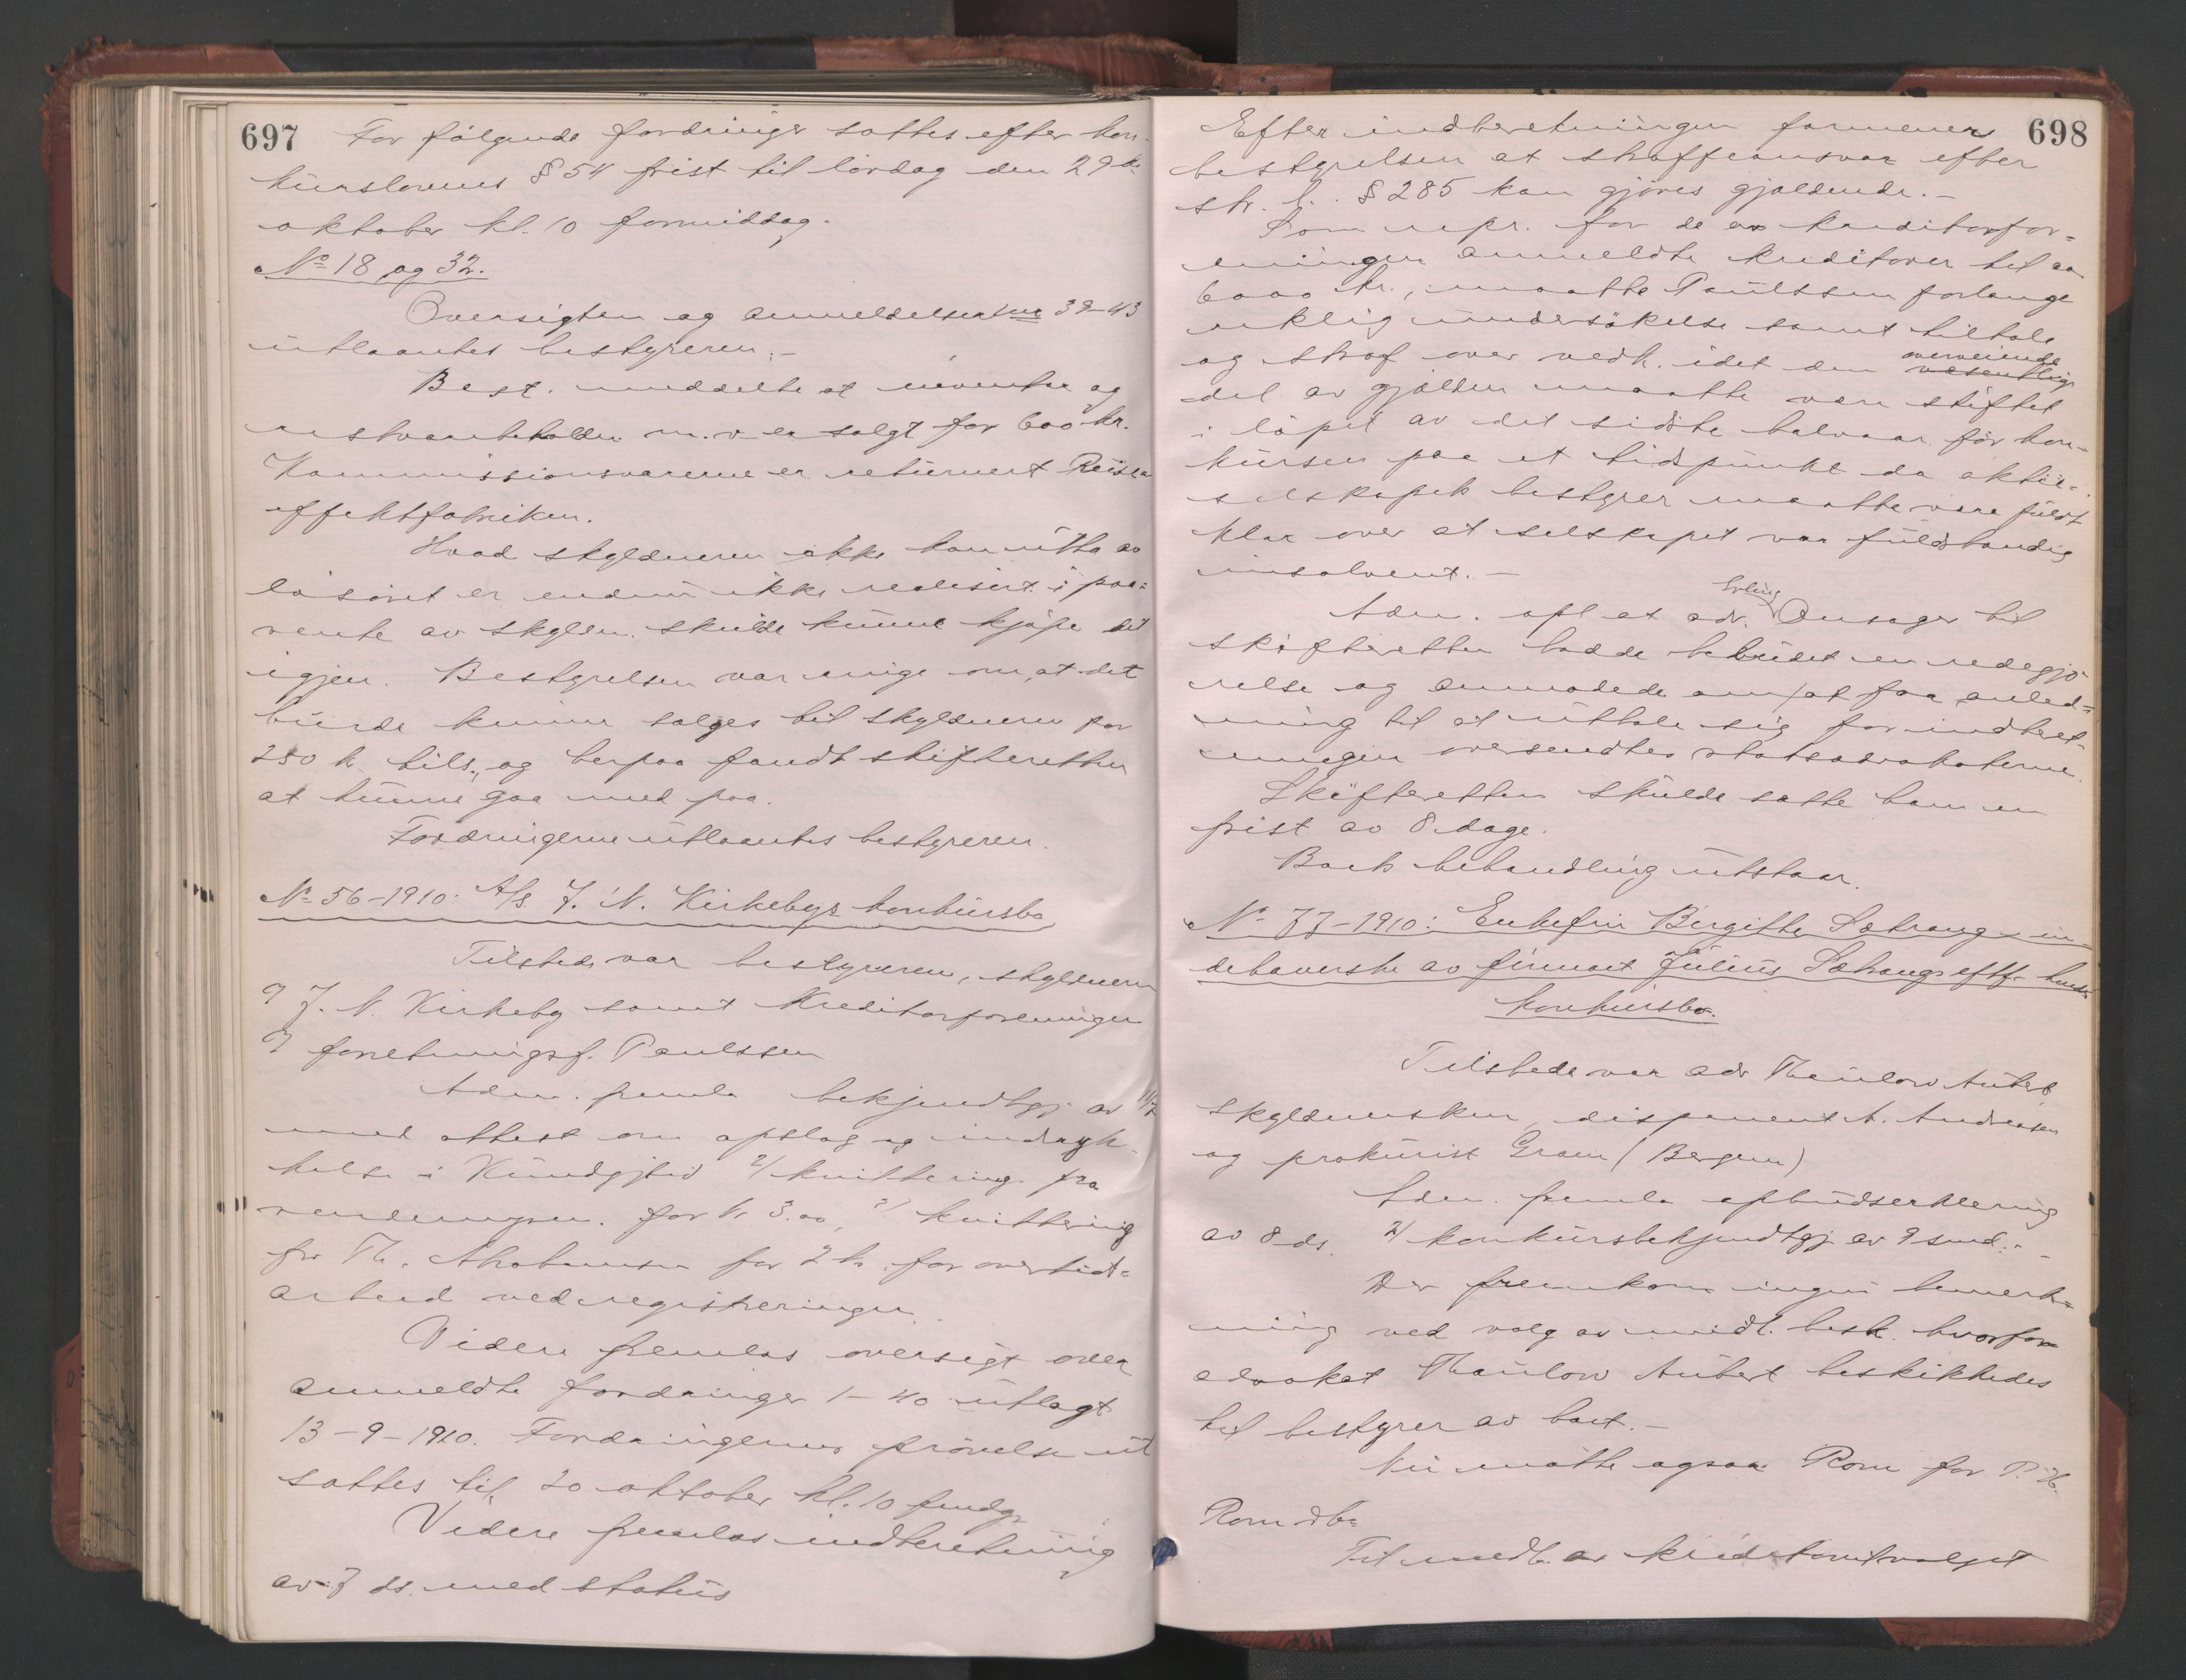 697
For følgende fordringer sattes efter kon-
kurslovens § 54 frist til lördag den 29de
oktober kl. 10 formiddag.
No 18 og 32.
Oversigten og anmeldelserne 38-43
utlaantes bestyreren.-
Best. meddelte at inventar og
restvarebeholdn. m.v. er solgt for 600 kr.
Kommissionsvarerne er returnert Reise
effektfabriken.
Hvad skyldneren ikke kan utta av
løsøret er endnu ikke realisert i paa=
vente av skyldn. skulde kunne kjøpe det
igjen. Bestyrelsen var enige om, at det
burde kunne sælges til skyldneren for
250 kr. tils., og herpaa fandt skifteretten
at kunne gaa med paa.
Fordringerne utlaantes bestyreren.
No 56-1910. A/S J. N. Kirkebys konkursbo
Tilstede var bestyreren, skyldneren
J. N. Kirkeby samt Kreditorforeningen
v/ forretningsf. Paulssen
Adm. fremla bekjendtgj. av
med attest om opslag og indryk-
kelse i Kundgjtid 2/ kvittering fra
for kr 3.00, 3/ kvittering
fra Th. Abrahamsen for 2 kr. for overtid=
arbeid ved registreringen.
Videre fremlas oversigt over
anmeldte fordringer 1-40 utlagt
13-9-1910. Fordringernes prövelse ut
sattes til 20 oktober kl. 10 fmdg.
Videre fremlas indberetning
av 7 ds. med status
698
Efter indberetningen formener
bestyrelsen at straffeansvar efter
str. l. § 285 kan gjöres gjældende.-
Som repr. for de av kreditorfor=
eningen anmeldte kreditorer til ca.
6000 kr., maatte Paulssen forlange
undersökelse samt tiltale
og straf over vedk. idet den overveiende væsentlige
del av gjælden maatte være stiftet
i löpet av det sidste halvaar för kon-
kursen paa et tidspunkt da aktie-
selskapets bestyrer maatte være fuldt
klar over at selskapet var fuldstændig
insolvent.-
Adm. opl. at adv. Erling Onsager til
skifteretten hadde bebudet en redegjö-
relse og anmodede om at faa anled=
ning til at uttale sig för indberet-
ningen oversendtes statsadvokaterne.
Skifteretten skulde sætte ham en
frist av 8 dage.
Boets behandling utstaar.
No 77-1910: Enkefru Birgitte Sætrang - in-
dehaverske av firmaet Julius Sætrangs eftf.
konkursbo.
Tilstede var adv. Thaulow Aubert
skyldnersken, disponent A. Andreasen
og prokurist Gram (Bergen)
Adm. fremla opbudserklæring
av 8 ds. 2/ konkursbekjendtgj. av 9 smd.-
Der fremkom ingen bemerk=
ning ved valg av midl. best. hvorfor
advokat Thaulow Aubert beskikkedes
til bestyrer av boet.-
Nu møtte ogsaa Rom for P. H.
Rom
Til medl. av kreditorutvalget